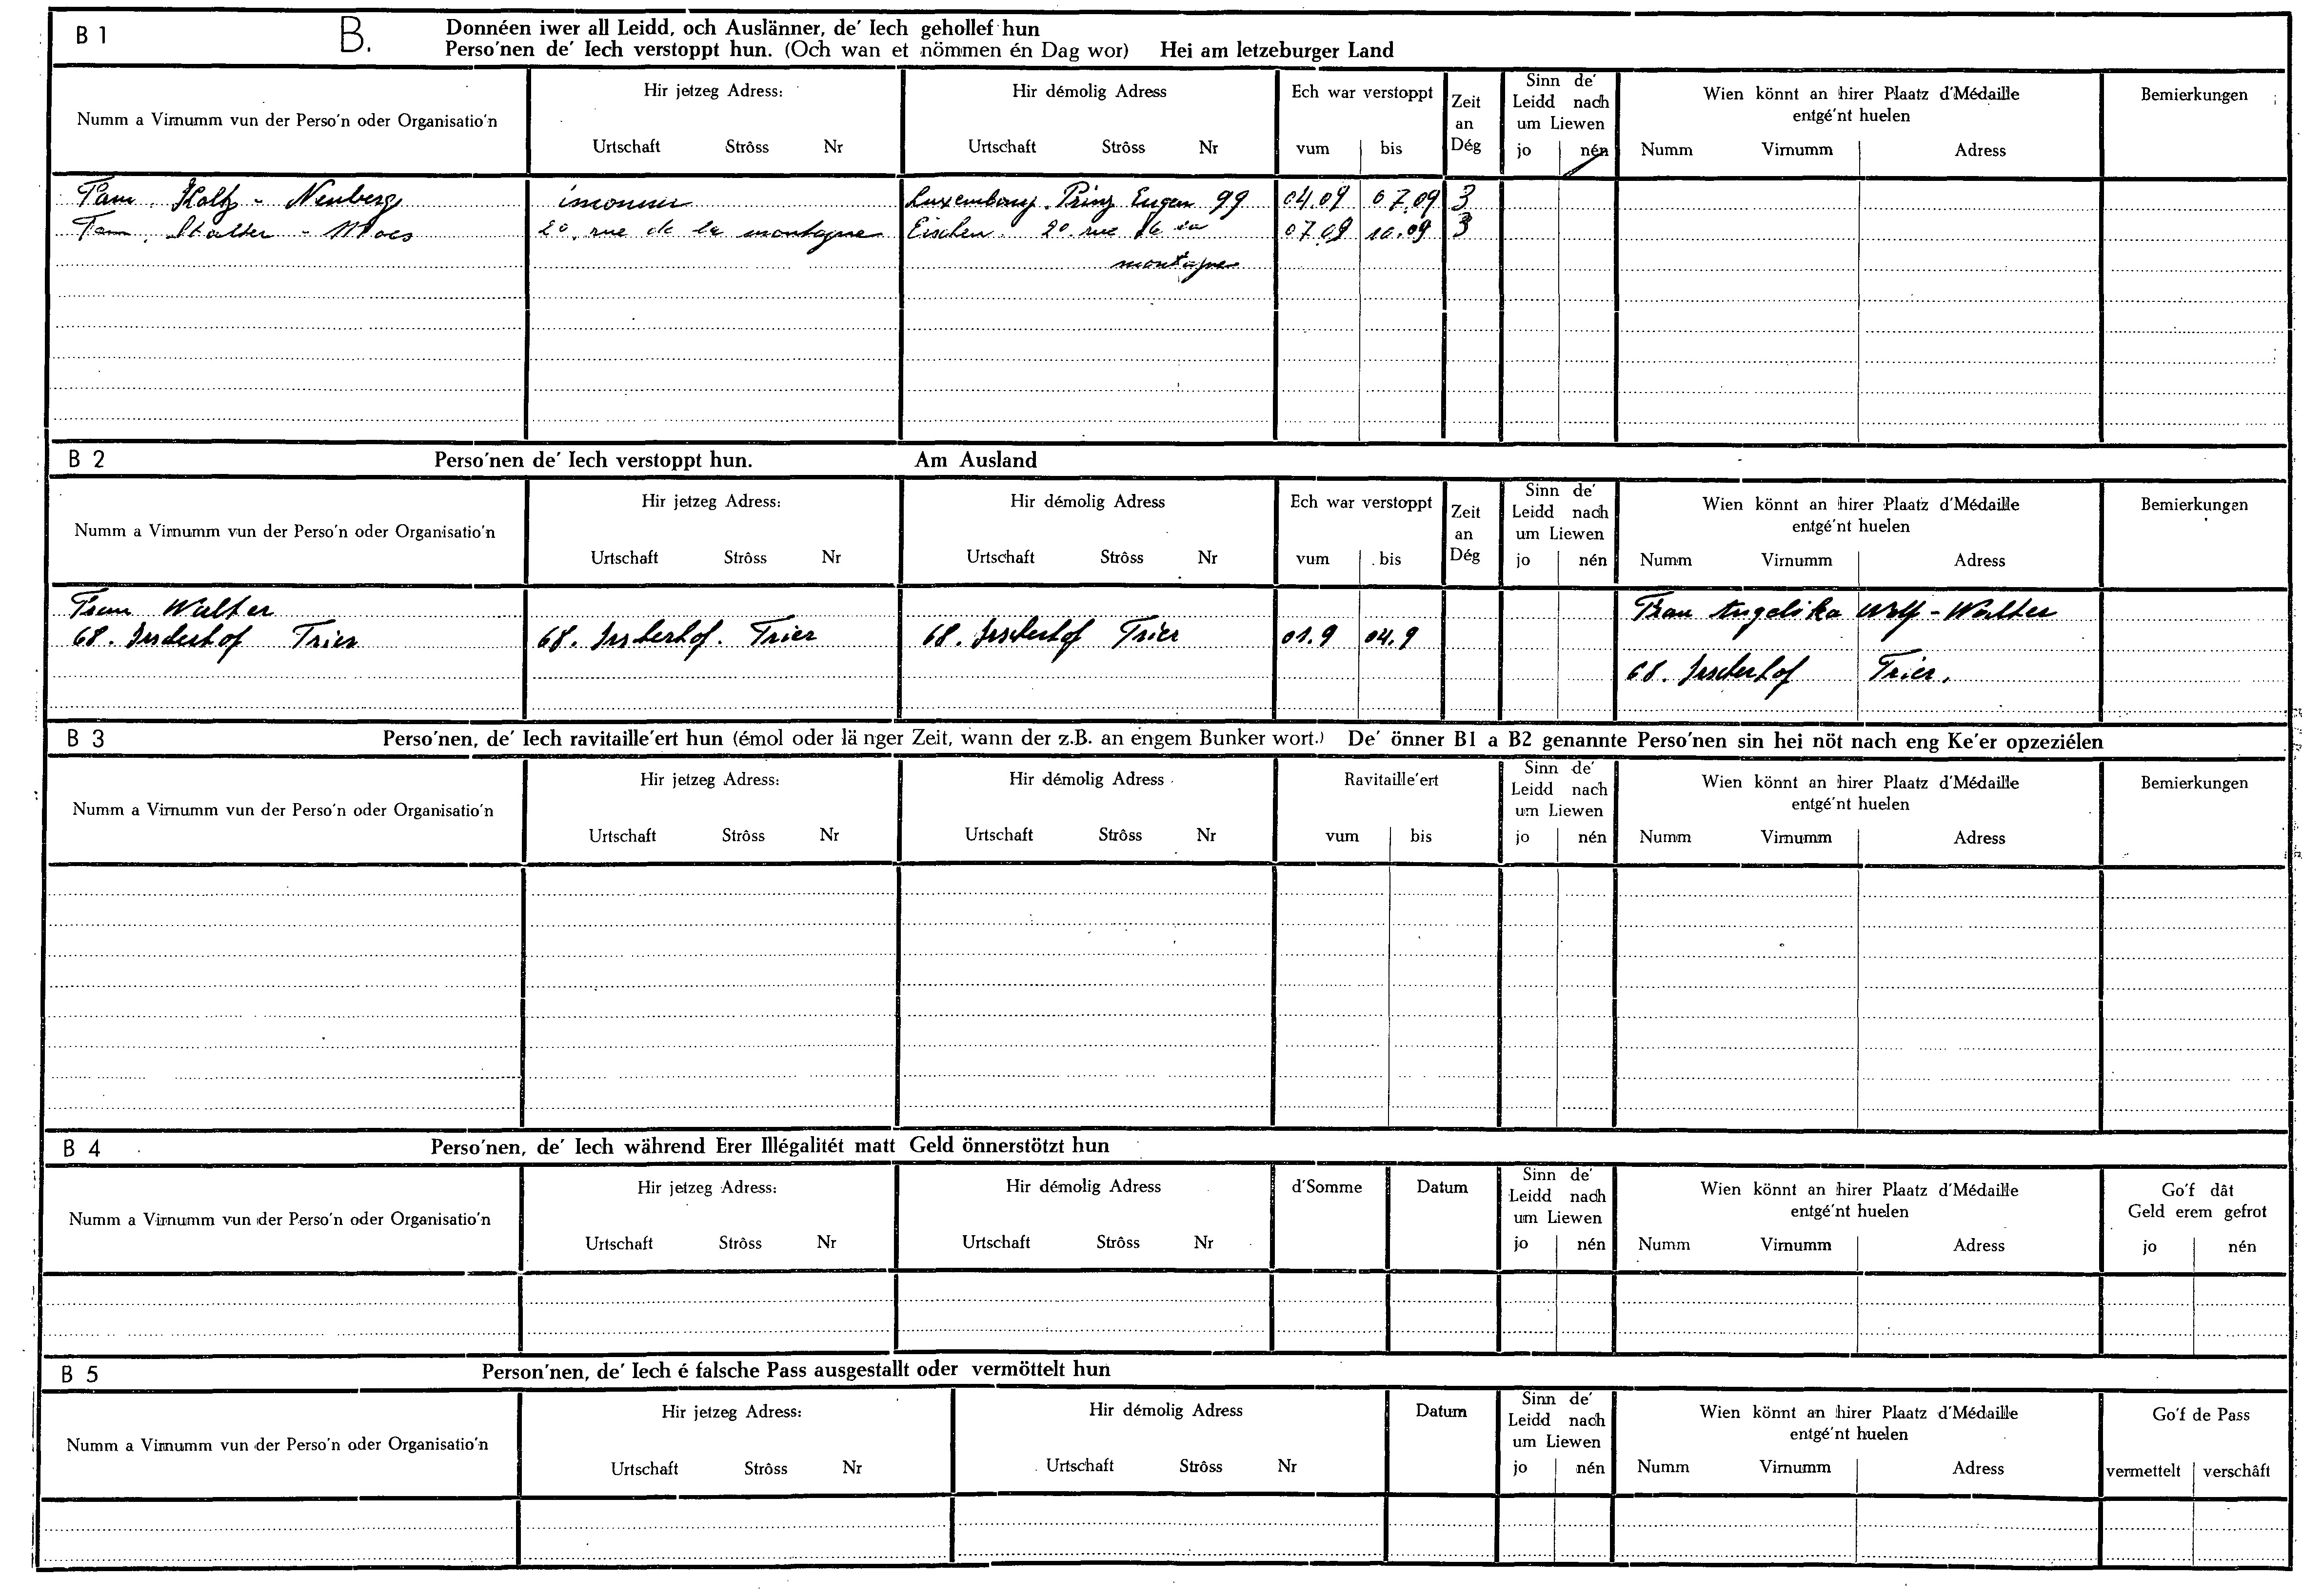 B 1 B. Donnéen iwer all Leidd, och Auslänner, de' Iech gehollef hun
Perso'nen de' Iech verstoppt hun. (Och wan et nömmen én Dag wor) Hei am letzeburger Land
Numm a Virnumm vun der Perso'n oder Organisatio'n
Hir jetzeg Adress:
Urtschaft Strôss Nr
Hir démolig Adress
Urtschaft Strôss Nr
Ech war verstoppt
vum bis
Zeit
an
Dég
Sinn de'
Leidd nach
um Liewen
jo nén
Wien könnt an hirer Plaatz d'Médaille
entgé'nt huelen
Numm Virnumm Adress
Bemierkungen
Fam. - Neuberg Luxembourg. Prinz Eugen 99 04.09 07.09 3
Fam. - Maes 20. rue de la montagne Eischen 20. rue de la 07.09 10.09 3
montagne
B 2 Perso'nen de' Iech verstoppt hun. Am Ausland
Numm a Virnumm vun der Perso'n oder Organisatio'n
Hir jetzeg Adress:
Urtschaft Strôss Nr
Hir démolig Adress
Urtschaft Strôss Nr
Ech war verstoppt
vum bis
Zeit
an
Dég
Sinn de'
Leidd nach
um Liewen
jo nén
Wien könnt an hirer Plaatz d'Médaille
entgé'nt huelen
Numm Virnumm Adress
Bemierkungen
Frau Walter Frau Angelika Wolf - Walter
68. Irscherhof Trier 68. Irscherhof. Trier 68. Irscherhof Trier 01.9 04.9
68. Irscherhof Trier.
B 3 Perso'nen, de' Iech ravitaille'ert hun (émol oder länger Zeit, wann der z.B. an engem Bunker wort.) De' önner B1 a B2 genannte Perso'nen sin hei nöt nach eng Ke'er opzeziélen
Numm a Virnumm vun der Perso'n oder Organisatio'n
Hir jetzeg Adress:
Urtschaft Strôss Nr
Hir démolig Adress
Urtschaft Strôss Nr
Ravitaille'ert
vum bis
Sinn de'
Leidd nach
um Liewen
jo nén
Wien könnt an hirer Plaatz d'Médaille
entgé'nt huelen
Numm Virnumm Adress
Bemierkungen
B 4 Perso'nen, de' Iech während Erer Illégalitét matt Geld önnerstötzt hun
Numm a Virnumm vun der Perso'n oder Organisatio'n
Hir jetzeg Adress:
Urtschaft Strôss Nr
Hir démolig Adress
Urtschaft Strôss Nr
d'Somme
Datum
Sinn de'
Leidd nach
um Liewen
jo nén
Wien könnt an hirer Plaatz d'Médaille
entgé'nt huelen
Numm Virnumm Adress
Go'f dât
Geld erem gefrot
jo nén
B 5 Person'nen, de' Iech é falsche Pass ausgestallt oder vermöttelt hun
Numm a Virnumm vun der Perso'n oder Organisatio'n
Hir jetzeg Adress:
Urtschaft Strôss Nr
Hir démolig Adress
Urtschaft Strôss Nr
Datum
Sinn de'
Leidd nach
um Liewen
jo nén
Wien könnt an hirer Plaatz d'Médaille
entgé'nt huelen
Numm Virnumm Adress
Go'f de Pass
vermettelt verschâft